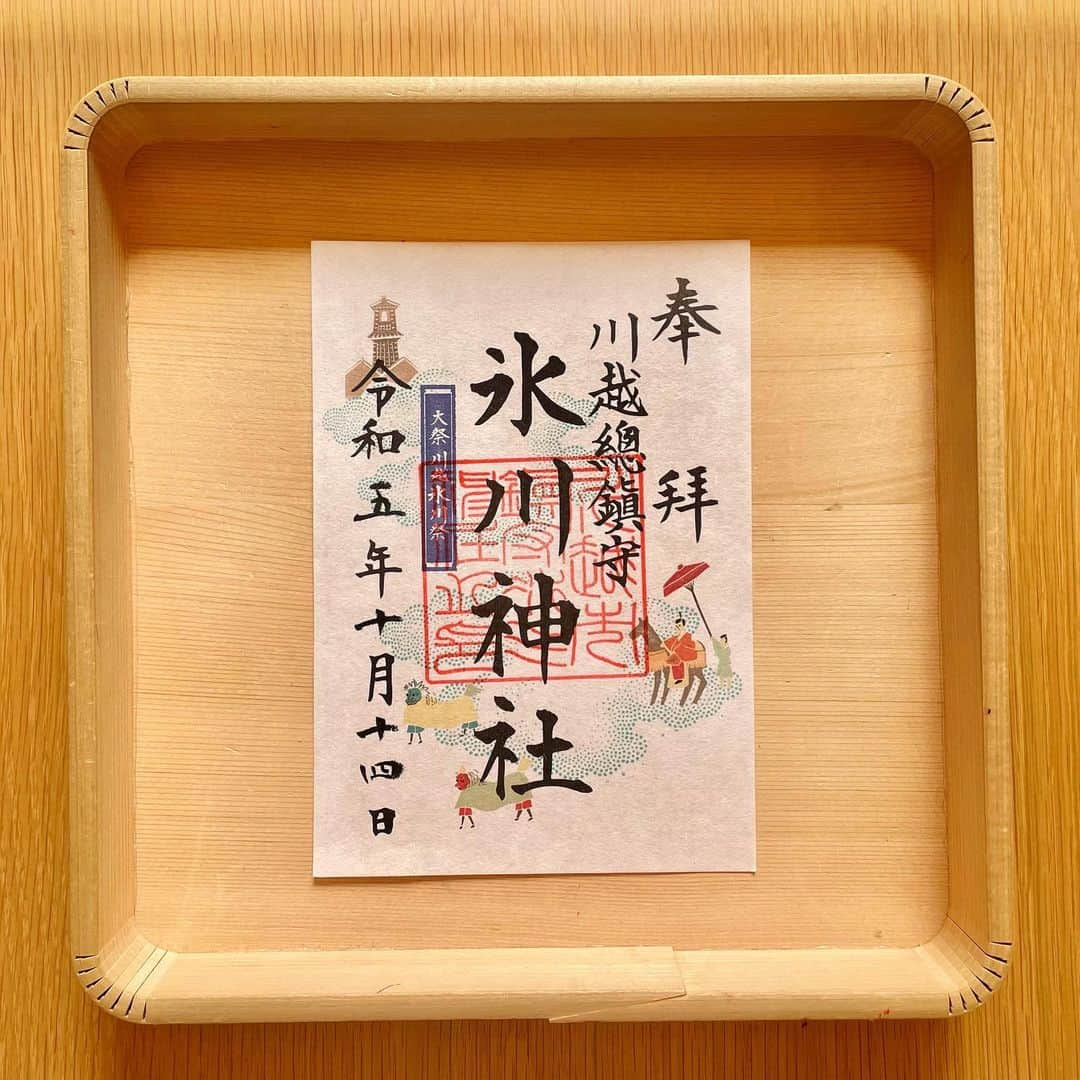 奉拝
川越總鎮守
氷川神社
大祭川越氷川祭
令和五年十月十四日